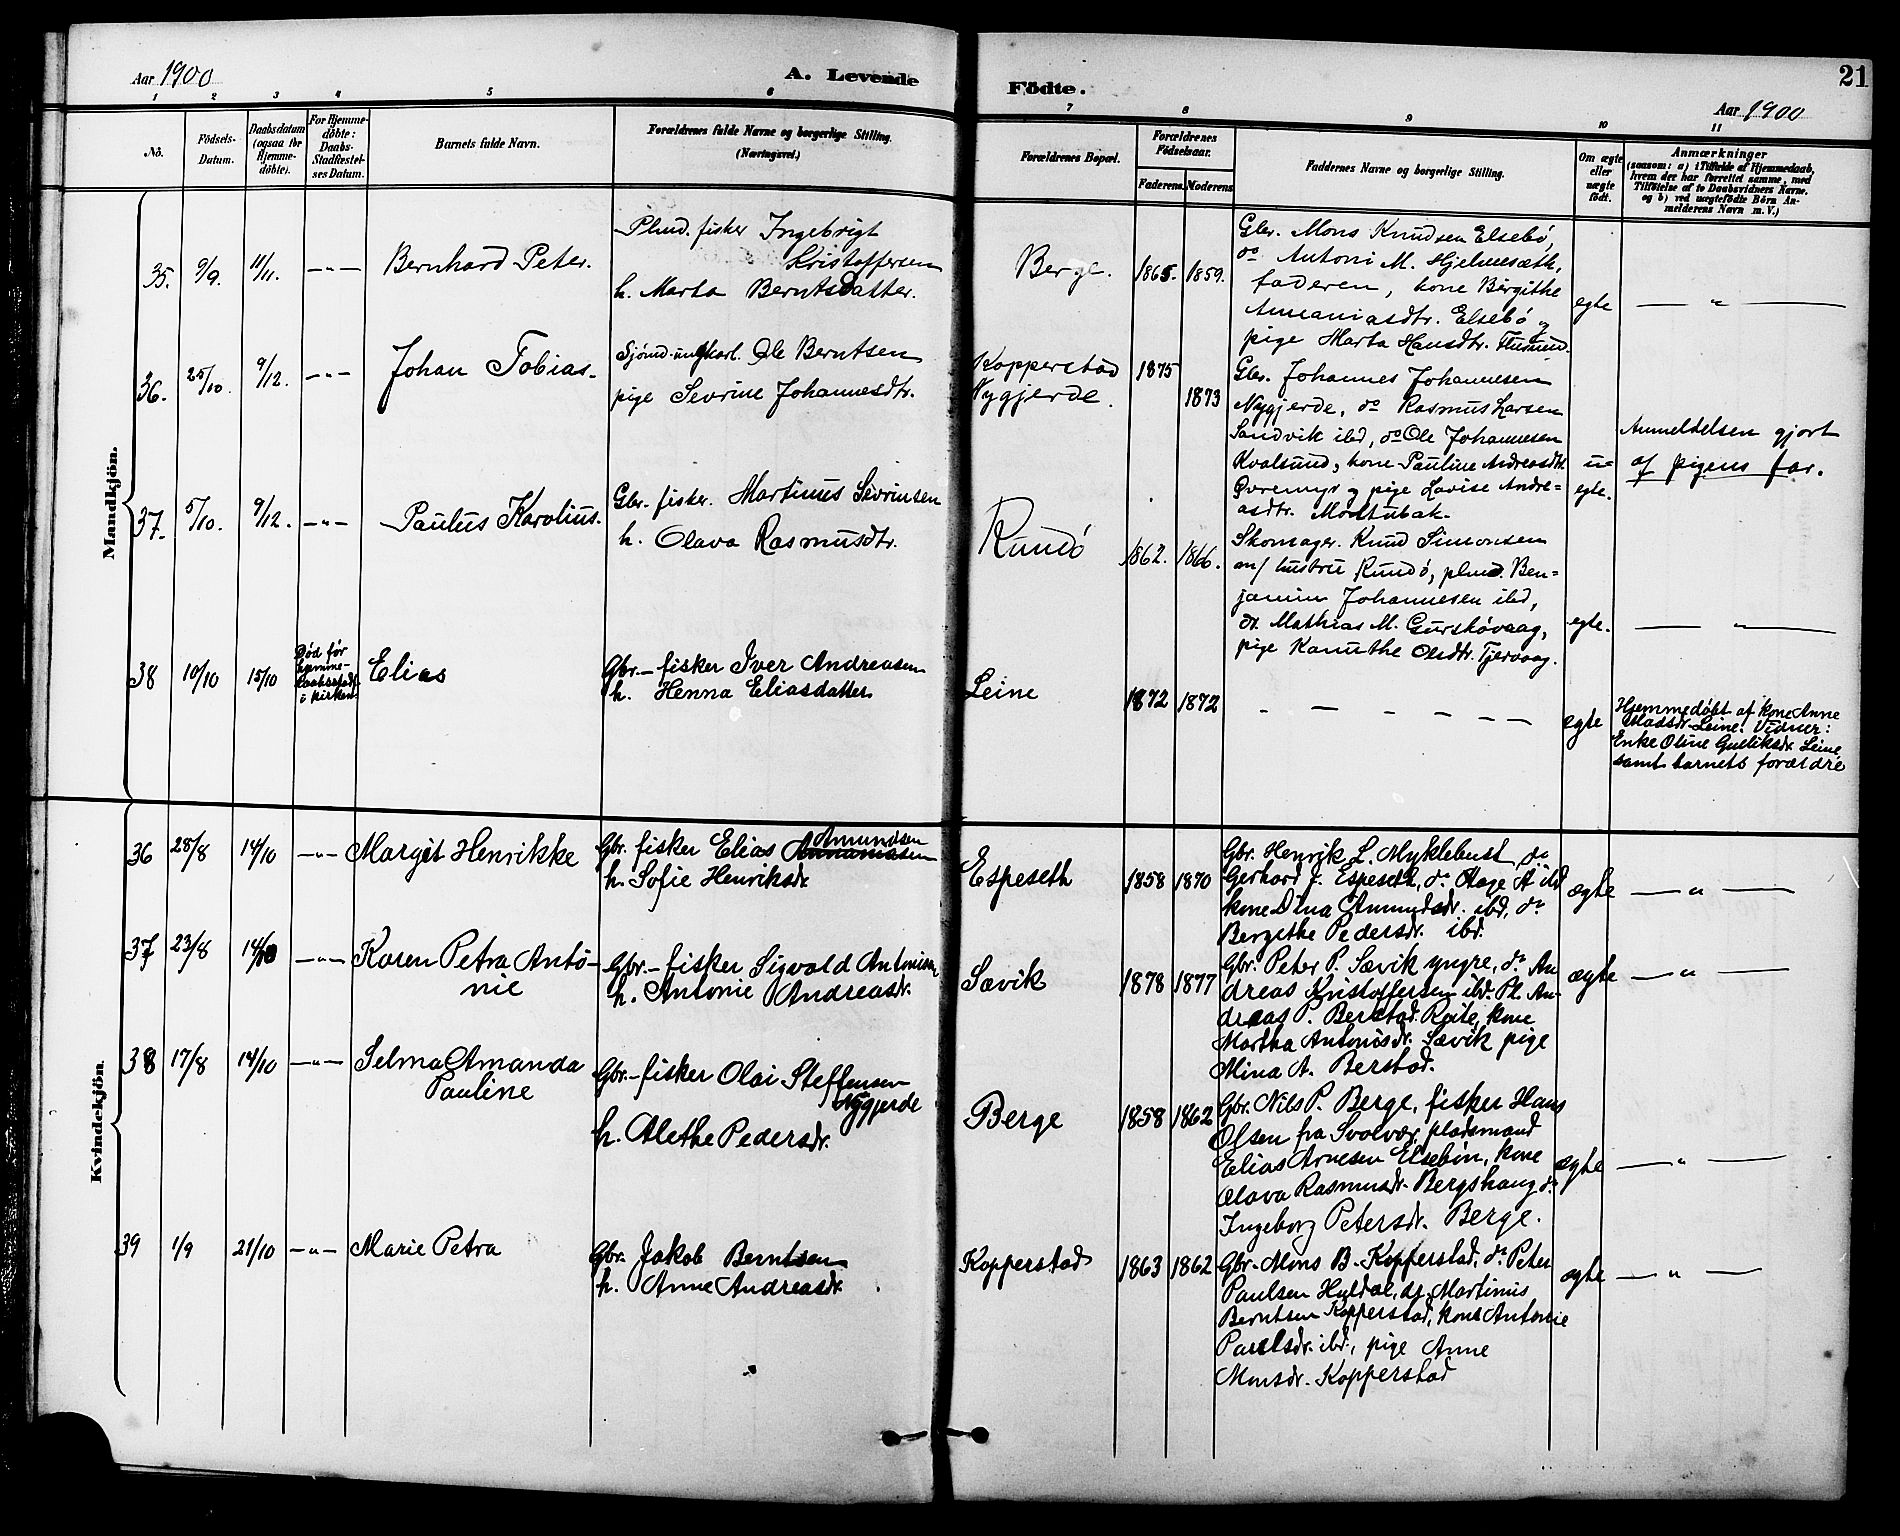 Aar 1900
A. Levende
Födte.
21
Aar 1900
1 2 3 4 5 6 7 8 9 10 11
No.
Födsels-
Datum.
Daabsdatum
(ogsaa for
Hjemme-
döbte).
For Hjemme-
döbte:
Daabs-
Stadfestel-
ses Datum.
Barnets fulde Navn.
Forældrenes fulde Navne og borgerlige Stilling.
(Næringsvei.)
Forældrenes Bopæl.
Forældrenes
Födselsaar.
Faderens. Moderens
Faddernes Navne og borgerlige Stilling.
Om ægte
eller
uægte
födt.
Anmærkninger
(saasom: a) i Tilfælde af Hjemmedaab,
hvem der har forrettet samme, med
Tilföielse af to Daabsvidners Navne.
og b) ved uægtefödte Börn An-
melderens Navn m. V.)
Mandkjön.
35. 9/9. 11/11. —"— Bernhard Peter.
Plmd. fisker Ingebrigt
Kristoffersen
h. Marta Berntsdatter.
Berge. 1865. 1859.
Gbr. Mons Knudsen Elsebö,
do Antoni M. Hjelmesæth,
faderen, kone Bergithe
Annaniasdtr. Elsebö og
pige Marta Hansdtr.
egte
— " —
36. 25/10. 9/12. —"— Johan Tobias.
Sjömd. ungkarl. Ole Berntsen
pige Sevrine Johannesdtr.
Kopperstad 1875
Nygjerde. 1873
Gbr. Johannes Johannesen
Nygjerde, do Rasmus Larsen
Sandvik ibd, do Ole Johannesen
Kvalsund, kone Pauline Andreasdtr.
Övremyr og pige Lovise Andre-
asdtr. Moltubak.
u-
egte.
Anmeldelsen gjort
af pigens far.
37. 5/10. 9/12. —"— Paulus Karolius.
Gbr. fisker. Martinus Sevrinsen
h. Olava Rasmusdtr.
Rundö 1862. 1866.
Skomager. Knud Simonsen
m/ hustru Rundö, plmd. Ben-
jamin Johannesen ibd,
do. Mathias M. Gurskövaag,
pige Kanuthe Olsdtr. Tjervaag.
egte.
— " —
38 10/10 15/10
Död för
hjemme-
daabsstadf.
i kirken
Elias
Gbr.- fisker Iver Andreasen
h. Henna Eliasdatter
Leine 1872 1872
- — - — - - —
egte
Hjemmedöbt af kone Anne
Madsdr. Leine. Vidner:
Enke Oline Gulliksdr. Leine
samt barnets forældre
Kvindekjön.
36 28/8 14/10 —"— Margit Henrikke
Gbr. fisker Elias Annaniasen Amundsen
h. Sofie Henriksdr.
Espeseth 1858 1870
Gbr. Henrik L. Myklebust, do
Gerhard J. Espeseth, do Hage A ibd
kone Dina Amundsdr. ibd, do
Bergithe Pedersdr. ibd.
ægte
— " —
37 23/8 14/10 —"— Karen Petra Antó-
nie
Gbr.- fisker Sigvald Antonisen
h. Antonie Andreasdr.
Sævik 1878 1877
Gbr. Peter P. Sævik yngre, do An-
dreas Kristoffersen ibd. Pl. An-
dreas P. Berstad. Reite, kone
Martha Antonisdr. Sævik pige
Mina A. Berstad.
ægte
— " —
38 17/8 14/10 —"— Selma Amanda
Pauline
Gbr.- fisker Olai Steffensen
Nygjerde
h. Alethe Pedersdr.
Berge 1858 1862
Gbr. Nils P. Berge, fisker Hans
Olsen fra Svolvær, pladsmand
Elias Arnesen Elsebön, kone
Olava Rasmusdr. Bergshaug do
Ingeborg Petersdr. Berge.
ægte
— " —
39 1/9 21/10 —"— Marie Petra
Gbr. Jakob Berntsen
h. Anne Andreasdr.
Kopperstad 1863 1862
Gbr. Mons B. Kopperstad, do Peter
Paulsen Huldal, do Martinus
Berntsen Kopperstad, kone Antonie
Paulsdr. ibd., pige Anne
Monsdr. Kopperstad
ægte
— " —